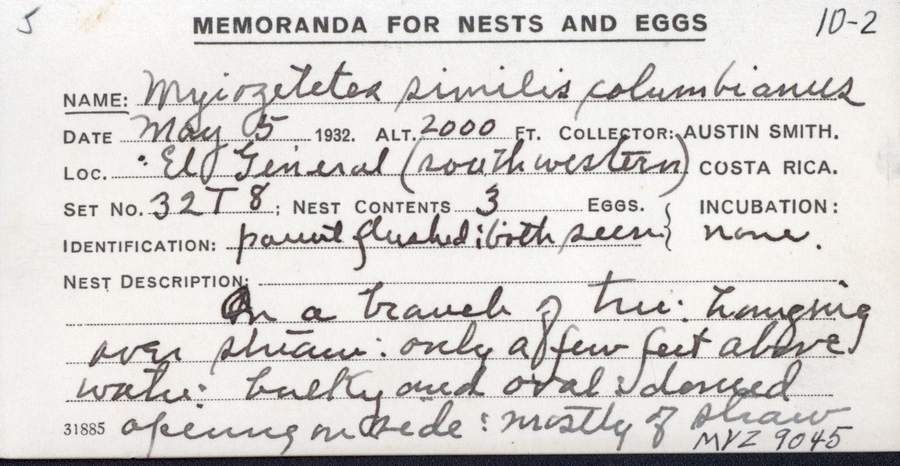 5 MEMORANDA FOR NESTS AND EGGS 10-2
NAME: Myiozetetes similis columbianus
DATE May 5 1932. ALT. 2000 FT. COLLECTOR: AUSTIN SMITH.
LOC. El General (southwestern) COSTA RICA.
SET NO. 32T8; NEST CONTENTS 3 EGGS. } INCUBATION:
IDENTIFICATION: parent flushed: both seen } none.
NEST DESCRIPTION:
On a branch of tree: hanging
over stream: only a few feet above
water: bulky and oval: domed
31885 opening on side: mostly of straw
MVZ 9045